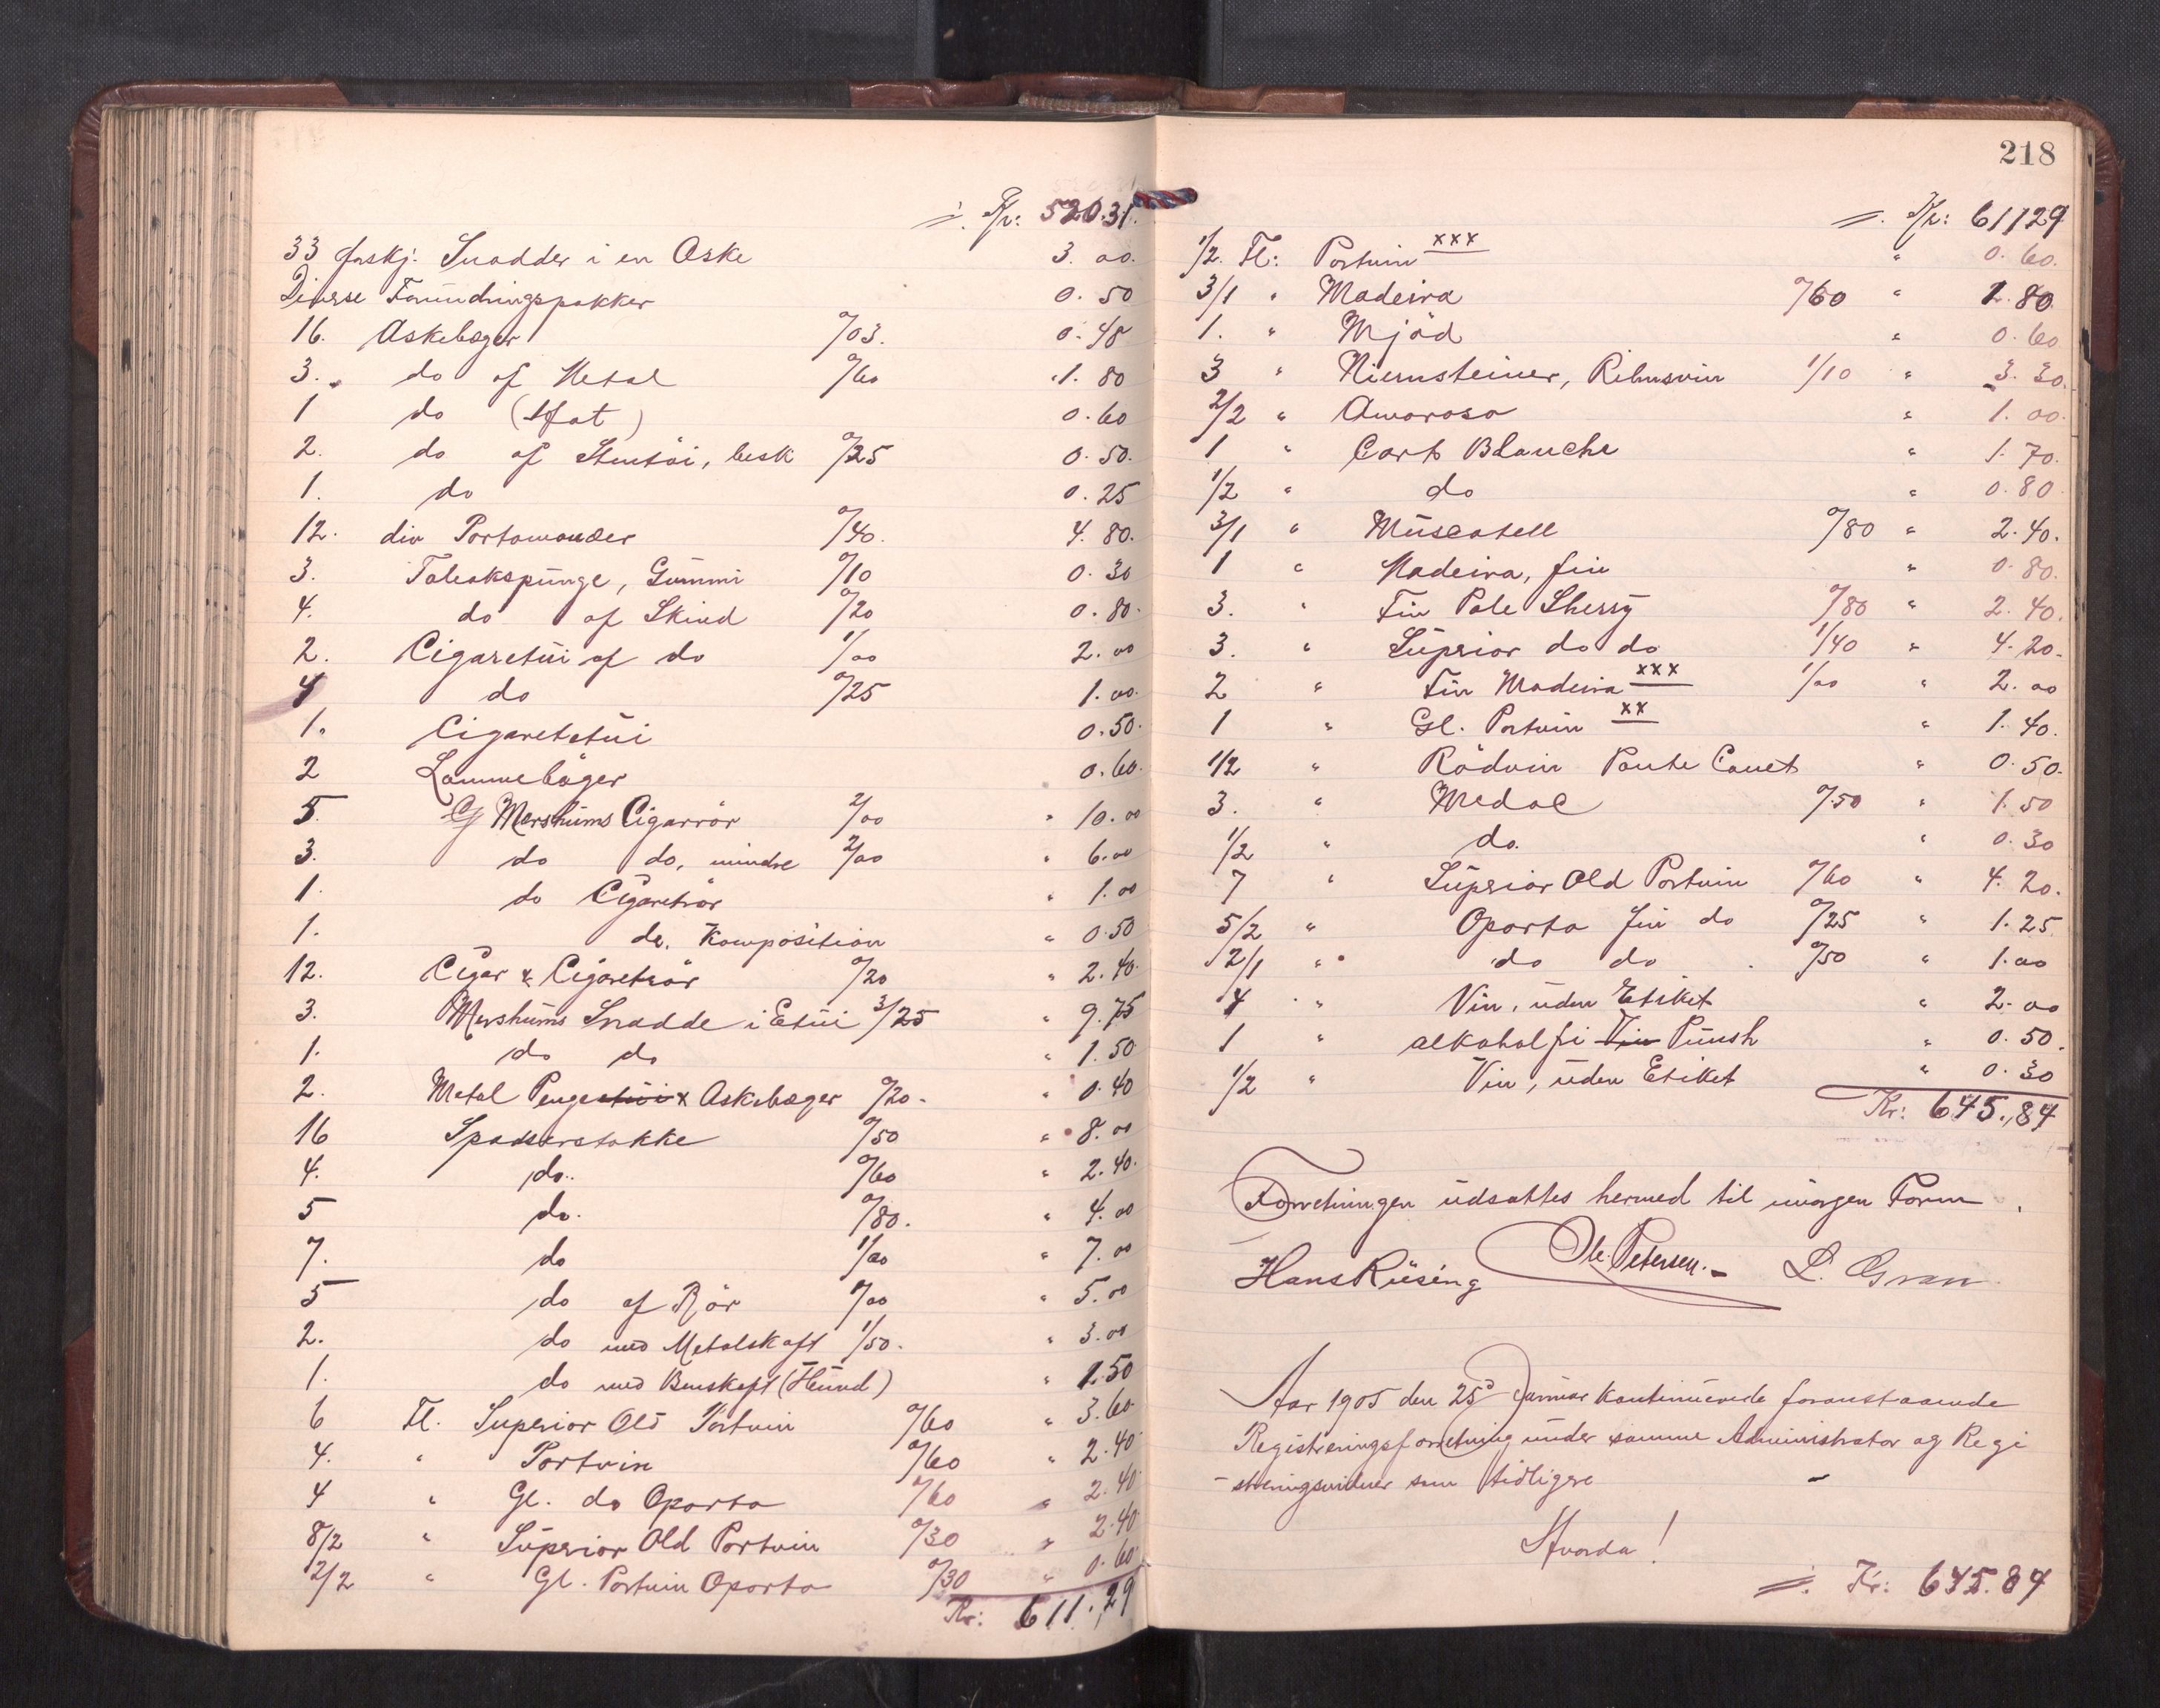 ⁒. Kr: 520.31.
33 forskj. Snadder i en Æske 3.00.
Diverse Forundringspakker 0.50
16. Askebæger 0/03. 0.48
3. do af Metal 0/60 1.80
1 do (Fat) 0.60
2. do af Stentöi, besk 0/25 0.50.
1. do 0.25
12. div Portemonæer 0/40. 4.80.
3. Tobakspunge, Gummi 0/10 0.30
4. do af Skind 0/20 0.80.
2. Cigaretui af do 1/00 2.00
4 do 0/25 1.00.
1. Cigaretetui 0.50.
2 Lommebäger 0.60.
5. Mershums Cigarrör 2/00 " 10.00
3. do do, mindre 2/00 " 6.00
1. do Cigaretrör " 1.00
1. do. Komposition " 0.50
12. Cigar & Cigaretrör 0/20 " 2.40.
3. Mershums Snadde i Etui 3/25 " 9.75
1. do do " 1.50
2. Metal Penge etui & Askebæger 0/20. " 0.40
16 Spadserstokke 0/50 " 8.00
4. do. 0/60 " 2.40.
5 do. 0/80. " 4.00
7. do 1/00 " 7.00
5 do af Rör 1/00 " 5.00
2. do med Metalskaft 1/50. " 3.00
1. do med Benskaft (Hund) " 1.50
6 Fl. Superior Old Portvin 0/60 " 3.60
4. " Portvin 0/60 " 2.40
4 " Gl. do Oporto 0/60 " 2.40
8/2 " Superior Old Portvin 0/30 " 2.40
2/2 " Gl. Portvin Oporto 0/30 " 0.60
Kr: 611.29
218
⁒. Kr: 611 29
1/2. Fl: Portvin xxx " 0.60.
3/1 " Madeira 0/60 " 1.80
1. " Mjöd " 0.60
3 " Niernsteiner, Rihnsvin 1/10 " 3.30.
2/2 " Amoroso " 1.00.
1 " Cart Blanche " 1.70.
1/2 " do " 0.80
3/1 " Muscatell 0/80 " 2.40.
1 " Madeira, fin " 0.80.
3. " Fin Pale Sherry 0/80 " 2.40.
3. " Superior do do 1/40 " 4.20.
2 " Fin Madeira xxx 1/00 " 2.00
1 " Gl. Portvin xx " 1.40.
1/2 " Rödvin Ponte Canet " 0.50.
3. " Medoc 0/50 " 1.50
1/2 " do. " 0.30
7 " Superior Old Portvin 0/60 " 4.20.
5/2 " Oporto fin do 0/25 " 1.25
2/1 " do do 0/50 " 1.00
4 " Vin, uden Etiket " 2.00
1 " alkoholfri Vin Punsh " 0.50.
1/2 " Vin, uden Etiket " 0.30
Kr: 645.84
Forretningen udsattes hermed til imorgen Form.
Hans Rüsing Ole Petersen. L. Gran
Aar 1905 den 25d Januar kontinuerede foranstaaende
Registreringsforretning under samme Administrator og Regi
-streringsvidner som tidligere -
Hvorda!
⁒. Kr: 645.84